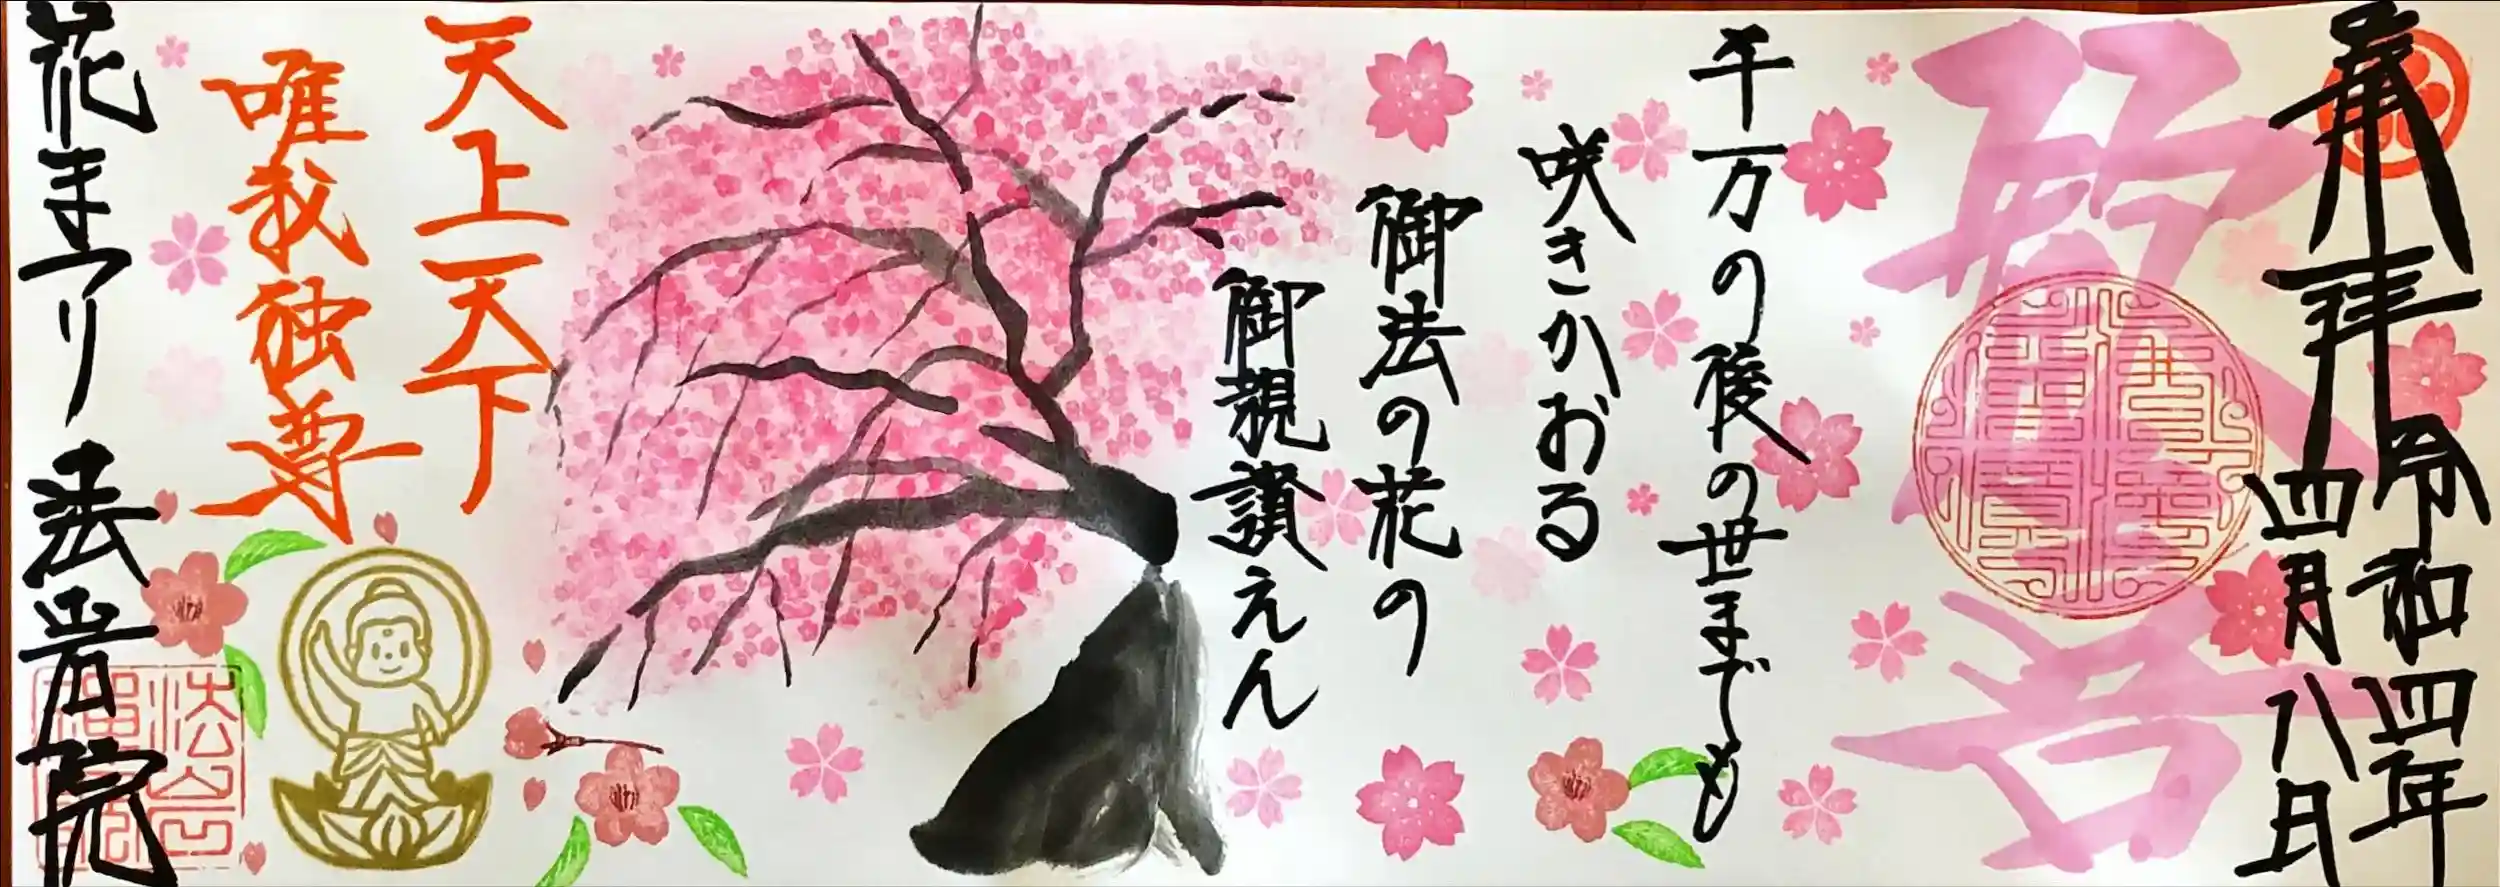 奉拝
令和四年
四月八日
千万の後の世までも
咲きかおる
御法の花の
御親讃えん
天上天下
唯我独尊
花まつり 法岩院